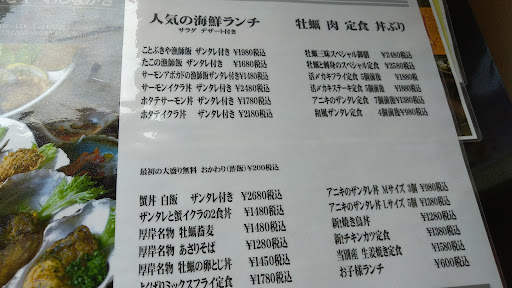 人気の海鮮ランチ
サラダ デザート付き
ことぶきや漁師飯 ザンタレ付き ¥1980税込
たこの漁師飯 ザンタレ付き ¥1680税込
サーモンアボガドの漁師飯 ザンタレ付き ¥1480税込
サーモンイクラ丼 ザンタレ付き ¥2480税込
ホタテサーモン丼 ザンタレ付き ¥1780税込
ホタテイクラ丼 ザンタレ付き ¥2180税込
牡蠣 肉 定食 丼ぶり
牡蠣三昧スペシャル御膳 ¥2480税込
牡蠣と刺身のスペシャル定食 ¥2580税込
活〆カキフライ定食 5個前後 ¥1880税込
活〆カキステーキ定食 5個前後 ¥1980税込
アニキのザンタレ定食 7個前後 ¥1380税込
和風ザンタレ定食 4個前後 ¥980税込
最初の大盛り無料 おかわり(酢飯)¥200税込
蟹丼 白飯 ザンタレ付き ¥2680税込
ザンタレと蟹イクラの2食丼 ¥1480税込
厚岸名物 牡蠣蕎麦 ¥1480税込
厚岸名物 あさりそば ¥1280税込
厚岸名物 牡蠣の卵とじ丼 ¥1450税込
よくばりミックスフライ定食 ¥1780税込
アニキのザンタレ丼 Mサイズ 3個 ¥980税込
アニキのザンタレ丼 Lサイズ 5個 ¥1380税込
新!焼き鳥丼 ¥1280税込
新!チキンカツ定食 ¥1380税込
当別産 生姜焼き定食 ¥1580税込
お子様ランチ ¥600税込